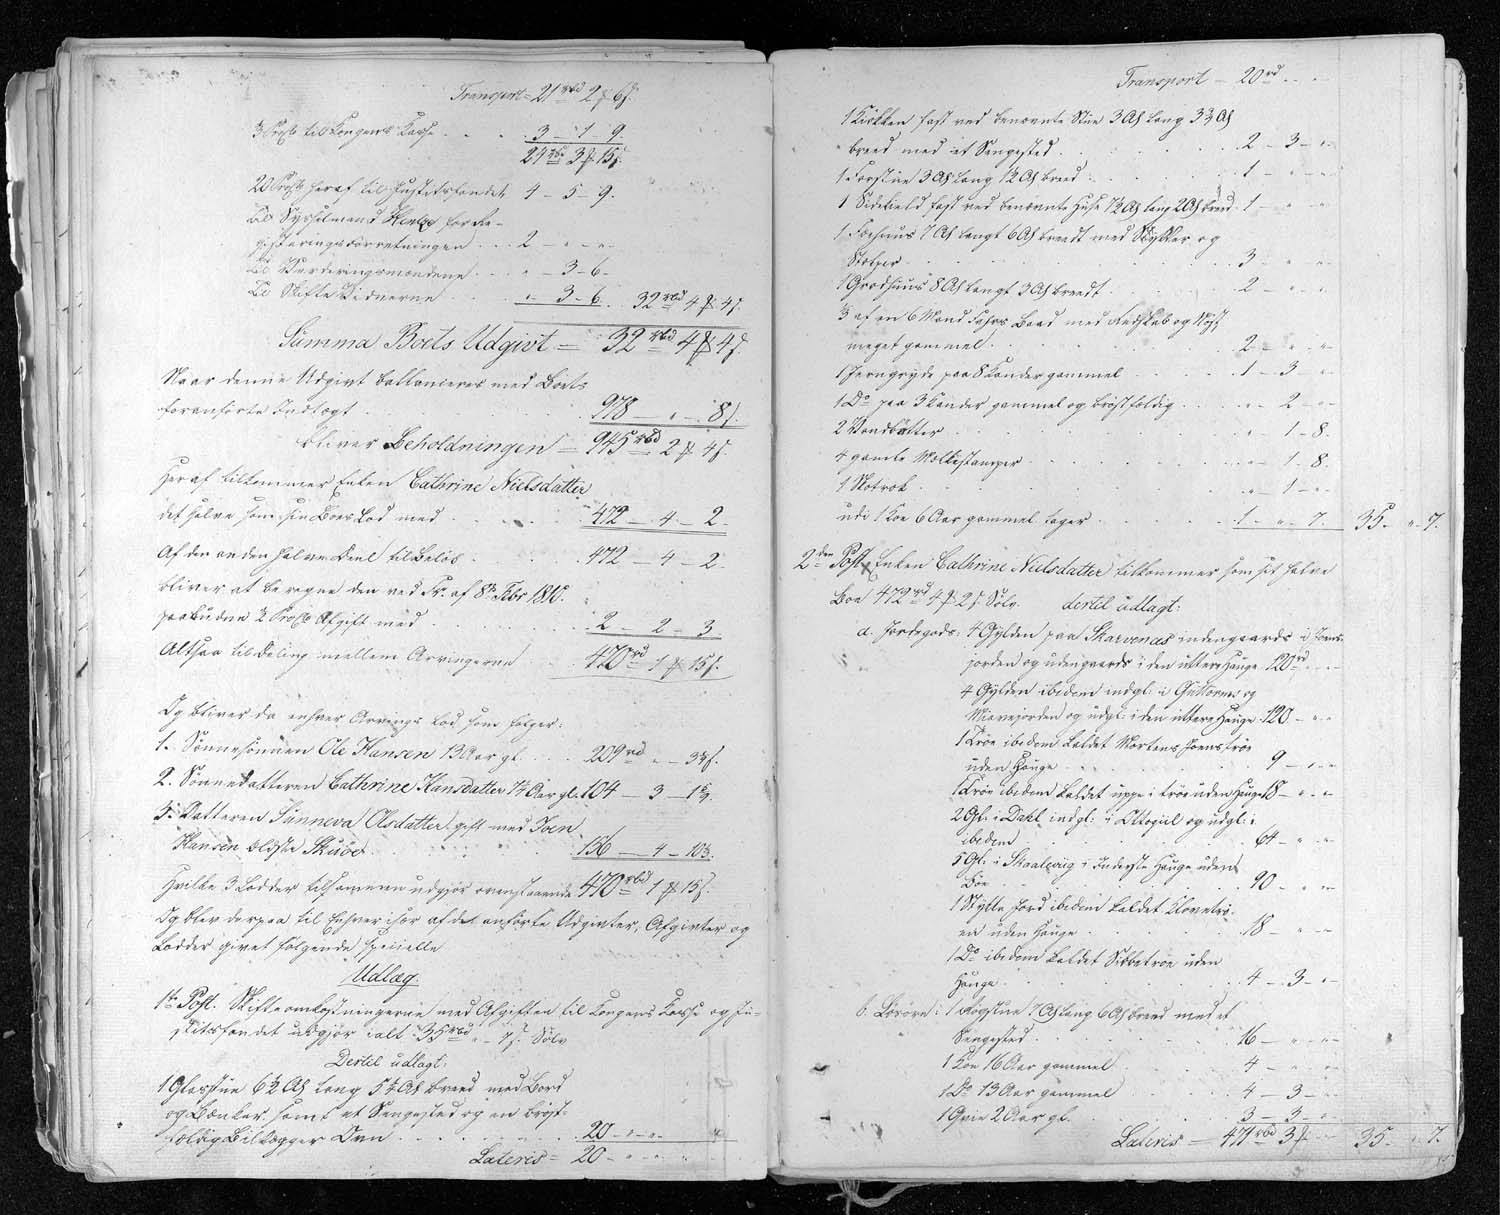 Transport = 21 rbd 2 ℔ 6 s.
⅓ Proct til Kongens Kasse . . . . 3 – 1 – 9.
24 rbd 3 ℔ 15 s.
20 Procto heraf til Justitsfondet 4 – 5 – 9.
Til Sysselmand for Re-
gisteringsforretningen . . . 2 – „ – „
Til Vurderingsmændene . . . „ – 3 – 6.
Til Skifte Vidnerne . . . . „ 3 – 6. 32 rbd 4 ℔ 4 s.
Summa Boets Udgivt = 32 rbd 4 ℔ 4 s.
Naar denne Udgivt ballancieres med Boets
foranførte Indtægt . . . 978 – „ – 8 s.
bliver Beholdningen = 945 rbd 2 ℔ 4 s.
Heraf tilkommer Enken Cathrine Nielsdatter
det halve som sin Boes Lod med . . . 472 – 4 – 2.
Af den anden halve Deel til Beløb . . . 472 – 4 – 2.
bliver at beregne den ved Fr. af 8de Febr 1810.
paabudne ½ Procto Afgift med . . . 2 – 2 – 3
Altsaa til Deling mellem Arvingerne . . 470 rd 1 ℔ 15 s.
Og bliver da enhver Arvings Lod som følger:
1. Sønnesønnen Ole Hansen 13 Aar gl. . . . 209 rd „ – 3⅗ s.
2. Sønnedatteren Cathrine Hansdatter 14 Aar gl. 104 – 3 – 1⅘.
3. Datteren Sunneva Olsdatter gift med Joen
Hansen ældste Skuøe . . . 156 – 4 – 10⅗.
Hvilke 3 Lodder tilsammen udgjør ovenstaaende 470 rbd 1 ℔ 15 s.
Og blev derpaa til Enhver især af det anførte Udgivter, Afgivter og
Lodder givet følgende specielle
Udlæg.
1ste Post. Skifteomkostningerne med Afgiften til Kongens Kasse og Ju-
stitsfondet udgjør i alt 35 rbd „ – 7 s. Sølv
Dertil udlagt:
1 Glasstue 6½ Al. lang 5¼ Al. breed med Bord
og Bænker samt et Sengested og en brøst-
fældig Bilægger Ovn . . . 20 – „ – „
Lateris = 20 – „ „
Transport – 20 rd . . .
1 Kiøkken fast ved benævnte Stue 3 Al. lang 3¾ Al.
breed med et Sengested . . . 2 – 3 – „
1 Forstue 3 Al. lang 1½ Al. breed . . . 1 – „ – „
1 Sideskuld fast ved benævnte Huse 7½ Al. lang 2 Al. breed . 1 – „ – „
1 Foehuus 7 Al. langt 6 Al. breedt med Stykker og
Stolper . . . 3 – „ – „
1 Grødhuus 8 Al. langt 3 Al. breedt . . . 2 – „ – „
⅓ af en 6 Mand Fahrs Baad med Redskab og Nøst,
meget gammel . . . 2 – „ – „
1 Jerngryde paa 8 Kander gammel . . . 1 – 3 – „
1 Do paa 3 Kander gammel og brøstfældig . . . „ – 2 – „
2 Vandbøtter . . . „ 1 – 8.
4 gamle Mælkestamper . . . „ – 1 – 8.
1 Notrok . . . „ – 1 – „
udi 1 Koe 6 Aar gammel tager . . . 1 – „ – 7. 35. „ 7.
2den Post Enken Cathrine Nielsdatter tilkommer som sit halve
Boe 472 rd 4 ℔ 2 s. Sølv. dertil udlagt:
a. Jordegods: 4 Gylden paa Skarvenæs indengaards i
jorden og udengaards i den ittere Hauge 120 rd . . .
4 Gylden ibidem indgl: i Guttorms og
Miavejorden og udgl: i den ittere Hauge 120 – „ –
1 Trøe ibidem kaldet Mortens Joenstrøe
uden Hauge . . . 9 – „ – „
1 Trøe ibidem kaldet uppe i trøe uden Hauge 18 – „ – „
2 Gl. i Dahl indgl: i Ottogiil og udgl: i
ibidem . . . 64 – „ – „
5 Gl. i Skaalevig i Inderste Hauge uden
Bøe . . . 90 – „ – „
1 Stykke Jord ibidem kaldet Klovetrø-
en uden Hauge . . . 18 – „ – „
1 Do ibidem kaldet Sibbetrøe uden
Hauge . . . 4 – 3 – „
b. Løsøre: 1 Rogstue 7 Al. lang 6 Al. breed med et
Sengested . . . 16 – „ – „
1 Koe 16 Aar gammel . . . 4 – „ – „
1 Do 13 Aar gammel . . . 4 – 3 – „
1 Qvie 2 Aar gl. . . . 3 – 3 – „
Lateris = 471 rbd 3 ℔ – 35. „ 7.